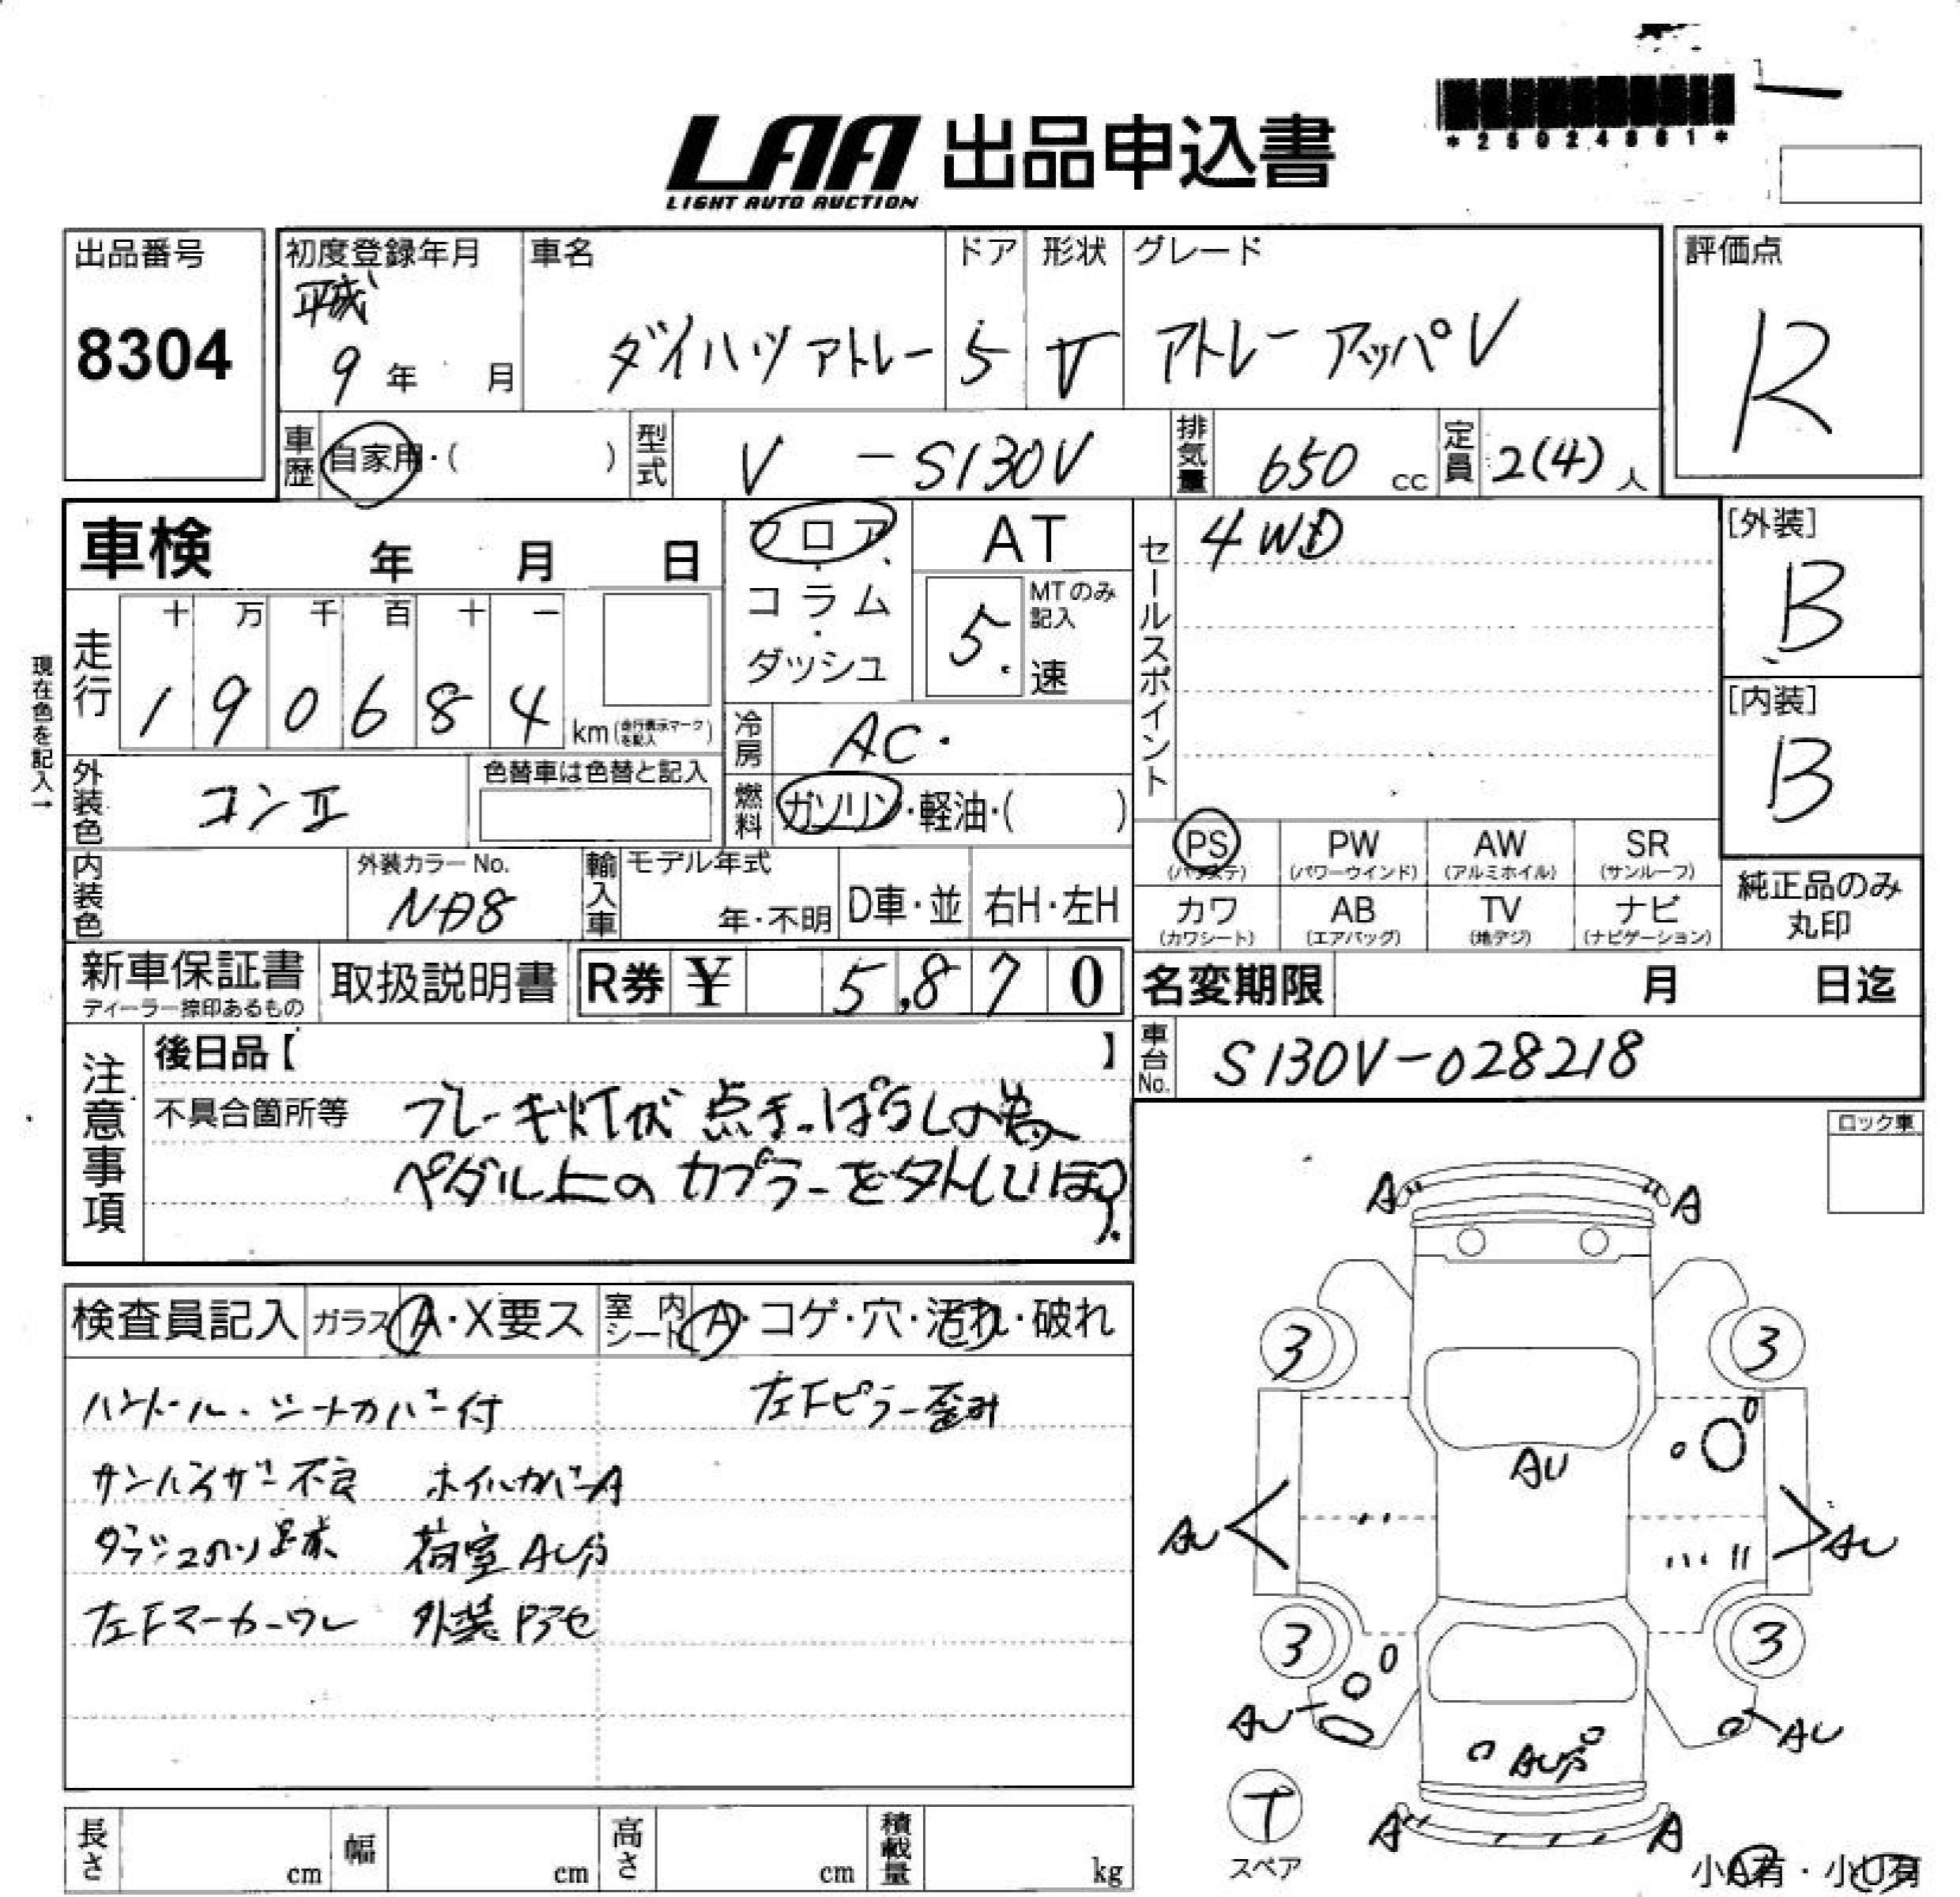 LAA 出品申込書
LIGHT AUTO AUCTION
出品番号
8304
初度登録年月
平成
9年 月
車名
ダイハツ アトレー
ドア
5
形状
V
グレード
アトレー アッパV
評価点
R
車歴 自家用・( )
型式 V - S130V
排気量 650 cc
定員 2(4)人
車検 年 月 日
フロア・コラム・ダッシュ
AT
5 MTのみ記入 速
セールスポイント
4WD
[外装]
B
[内装]
B
現在色を記入→
走行
十 万 千 百 十 一
1 9 0 6 8 4 km(走行表示マークを記入)
冷房 AC
燃料 ガソリン・軽油・( )
外装色 コンⅡ
色替車は色替と記入
内装色
外装カラーNo.
NA8
輸入車 モデル年式
年・不明 D車・並 右H・左H
PS (パワステ)
PW (パワーウインド)
AW (アルミホイル)
SR (サンルーフ)
カワ (カワシート)
AB (エアバッグ)
TV (地デジ)
ナビ (ナビゲーション)
純正品のみ丸印
新車保証書
ディーラー捺印あるもの
取扱説明書
R券 ¥ 5,870
名変期限 月 日迄
車台No. S130V-028218
注意事項
後日品【 】
不具合箇所等
ブレーキ 点きっぱなしの為
ペダル上のカプラーを外して
ロック車
検査員記入
ガラス A・X要ス
室内シート A・コゲ・穴・汚れ・破れ
ハンドル・シートカバー付
左Fピラー歪み
サンバイザー不良 ホイルカバーA
ダッシュのり跡 荷室AU多
左Fマーカーワレ 外装Pアセ
A A
3 3
AU
AU AU
3 3
AU AU
AU多
A A
T
スペア
小A有・小U有
長さ cm
幅 cm
高さ cm
積載量 kg